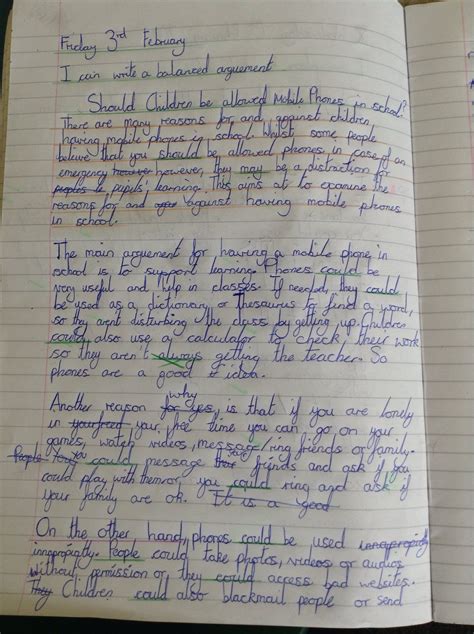 Friday 3rd February
I can write a balanced arguement
Should Children be allowed Mobile Phones in school?
There are many reasons for and against children
having mobile phones in school. Whilst some people
believe that you should be allowed phones in case of an
emergency however however, they may be a distraction for
people's le pupils' learning. This aims at to examine the
reasons for and against having mobile phones
in school.
The main arguement for having a mobile phone in
school is to support learning. Phones could be
very useful and help in classes. If needed, they could
be used as a dictionary or Thesaurus to find a word,
so they arent disturbing the class by getting up. Children
could also use a calculator to check their work
so they aren't always getting the teacher. So
phones are a good idea.
Another reason for why yes, is that if you are lonely
in your free time you can go on your
games, watch videos, message/ring friends or family.
People You could message friends and ask if you
could play with them or you could ring and ask if
your family are ok. It is a good
On the other hand, phones could be used
inapropigtly. People could take photos, videos or audios
without permission or they could access bad websites.
They Children could also blackmail people or send